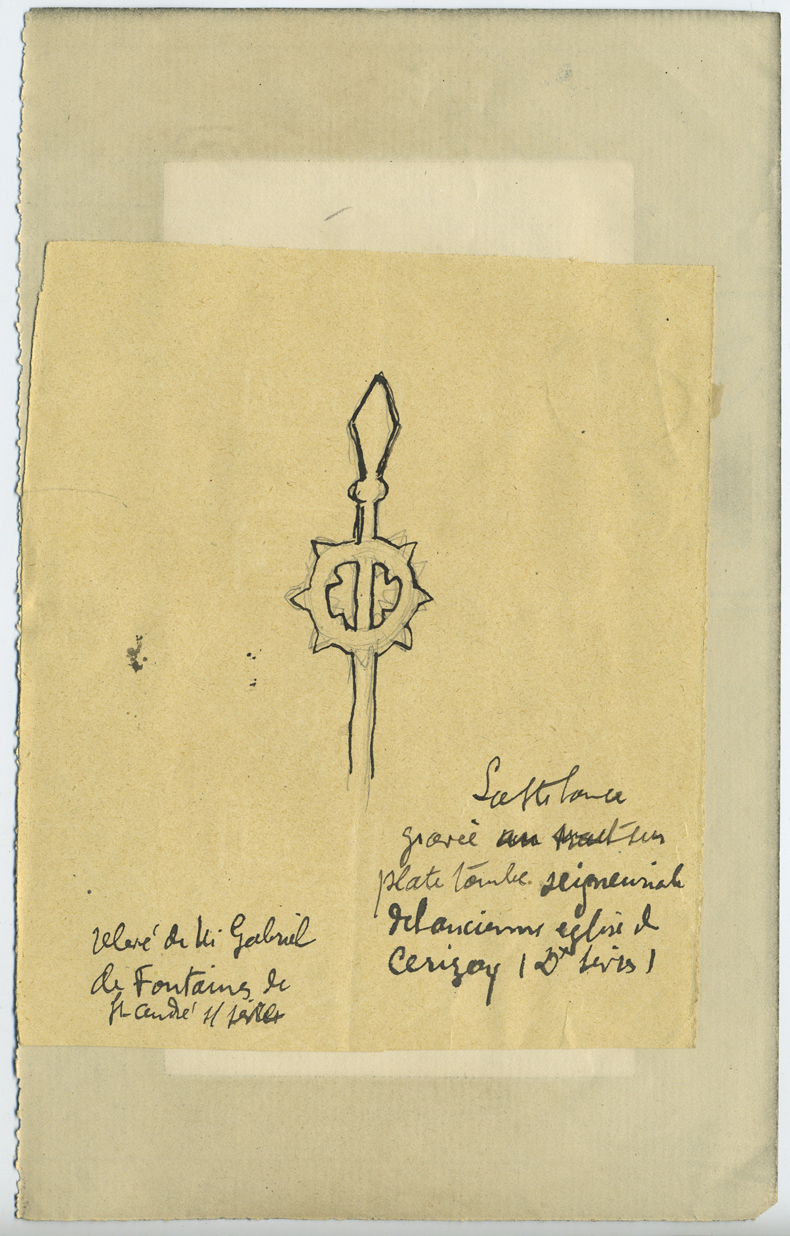 relevé de Mr Gabriel
de Fontaines de
St André s/ Sèvre
Cette lance
gravée au trait sur
plate tombe seigneuriale
de l'ancienne église de
Cerizay (Dx Sèvres)